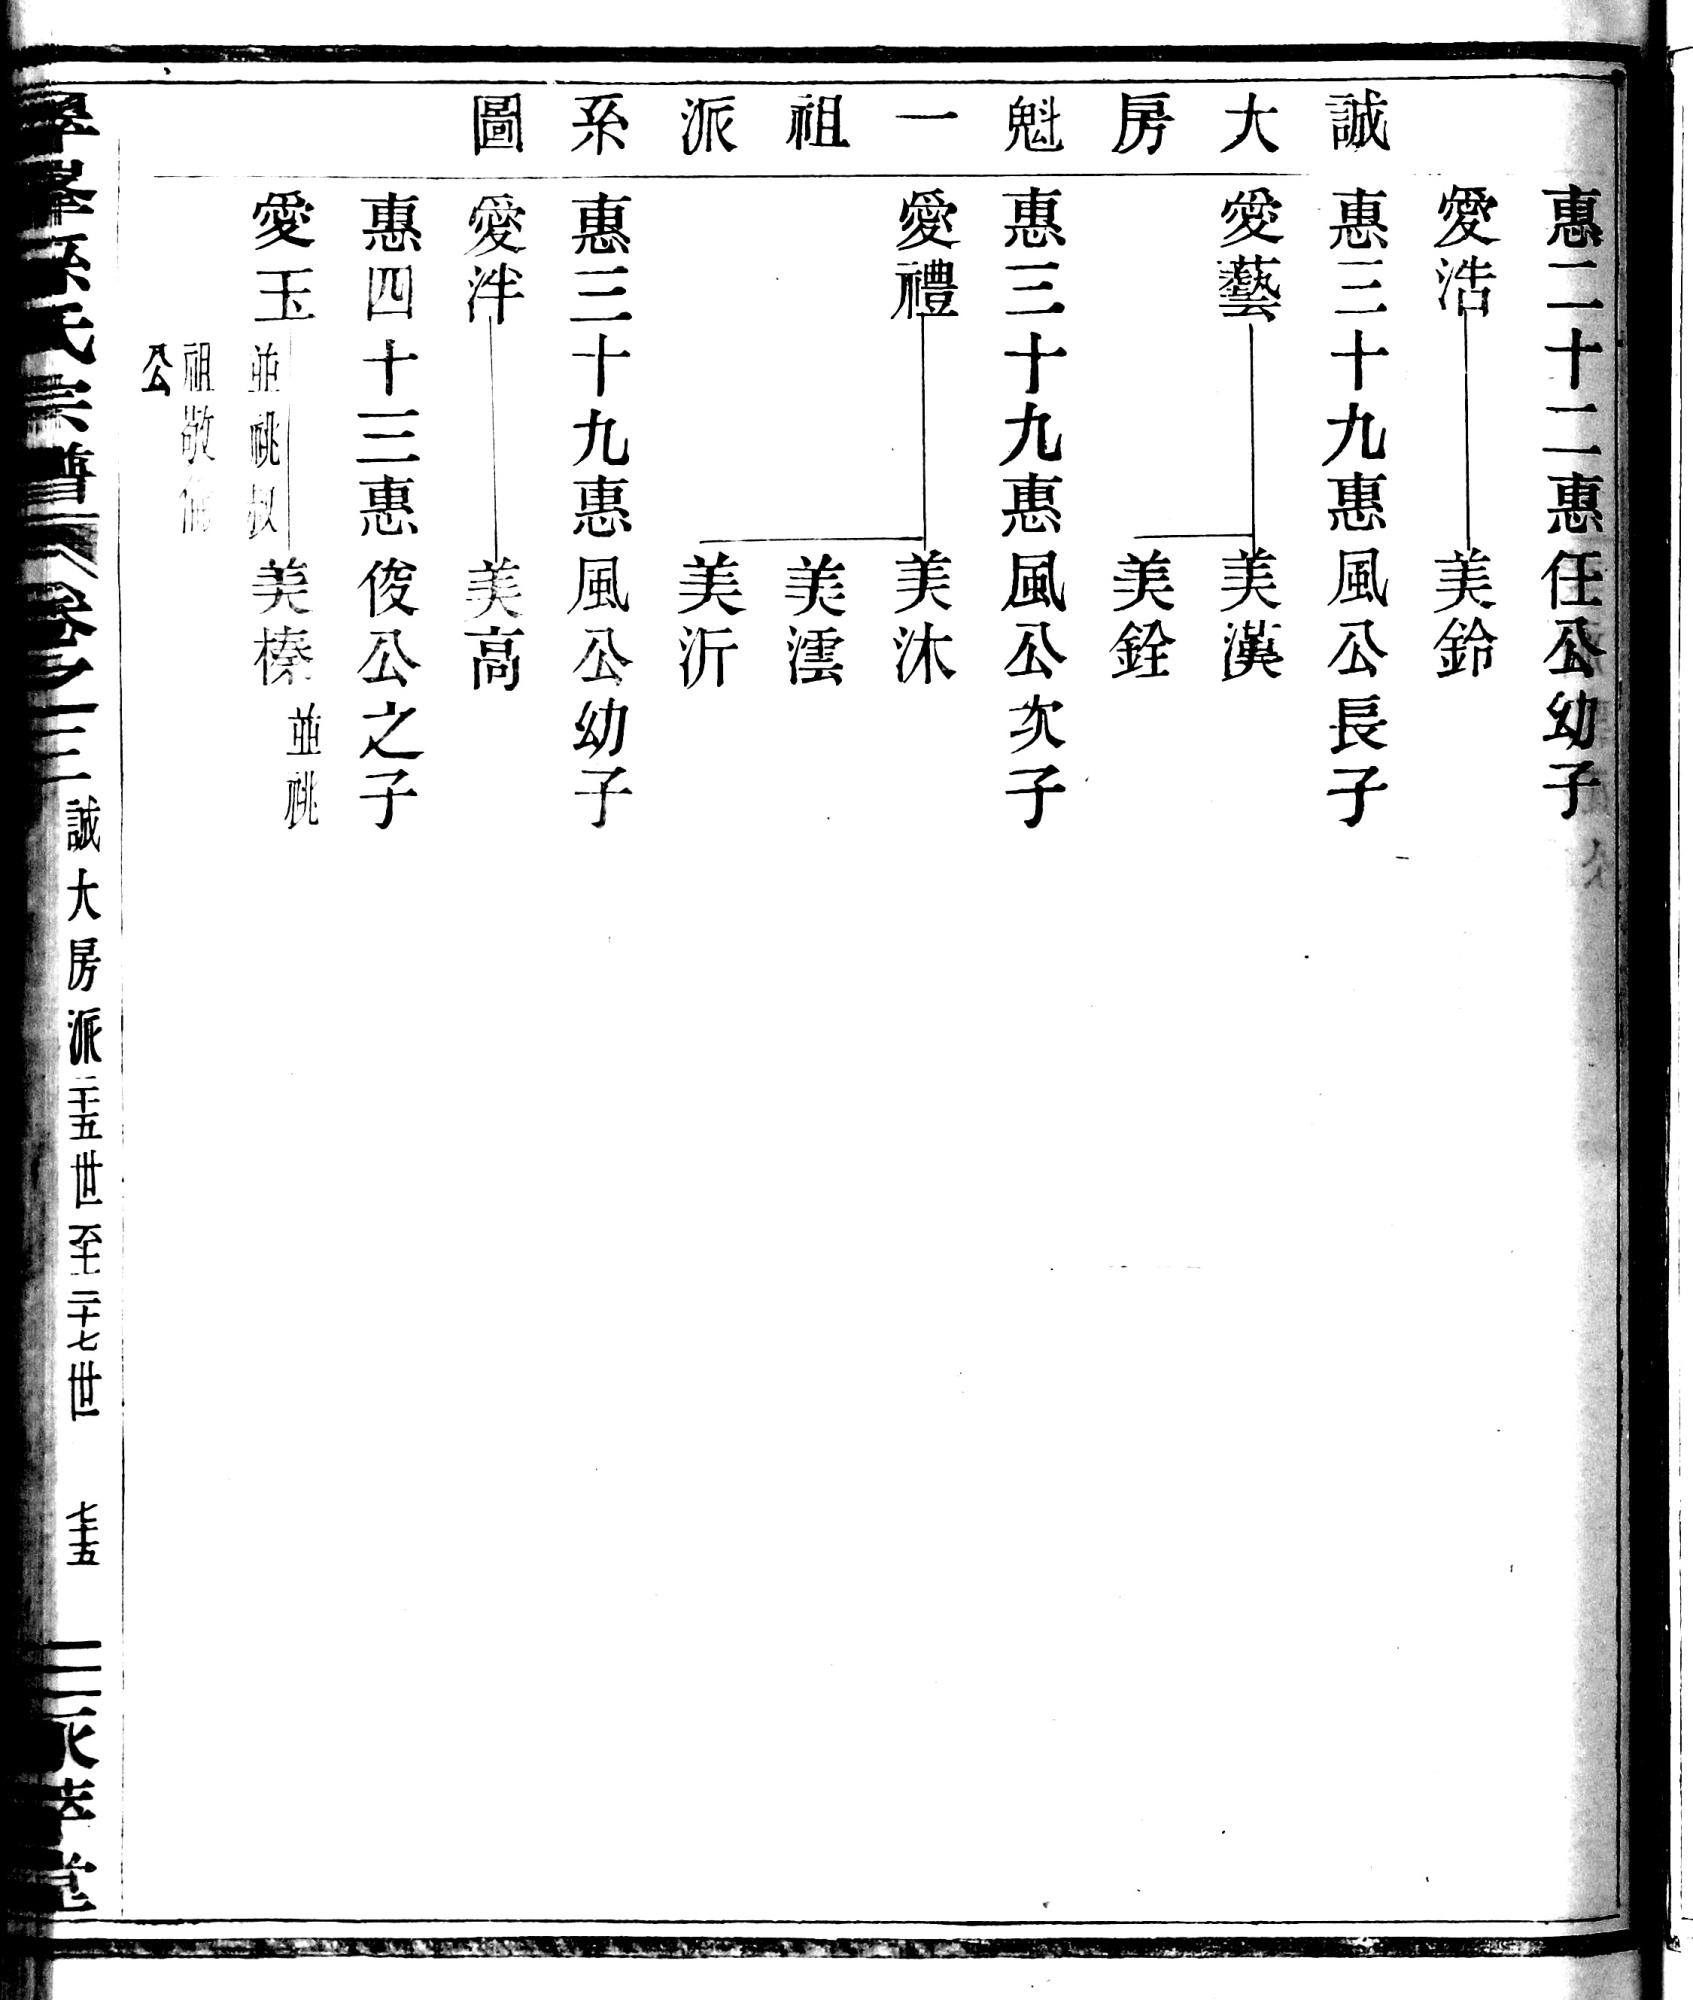 誠大房魁一祖派系圖
惠二十二惠任公幼子
愛浩 美鈴
惠三十九惠風公長子
愛藝 美漢
美銓
惠三十九惠風公次子
愛禮 美沐
美澐
美沂
惠三十九惠風公幼子
愛泮 美高
惠四十三惠俊公之子
愛玉 並祧叔祖敬 公 美榛 並祧
氏宗譜 卷之三 誠大房派 二十五世至二十七世 七十五 萃堂